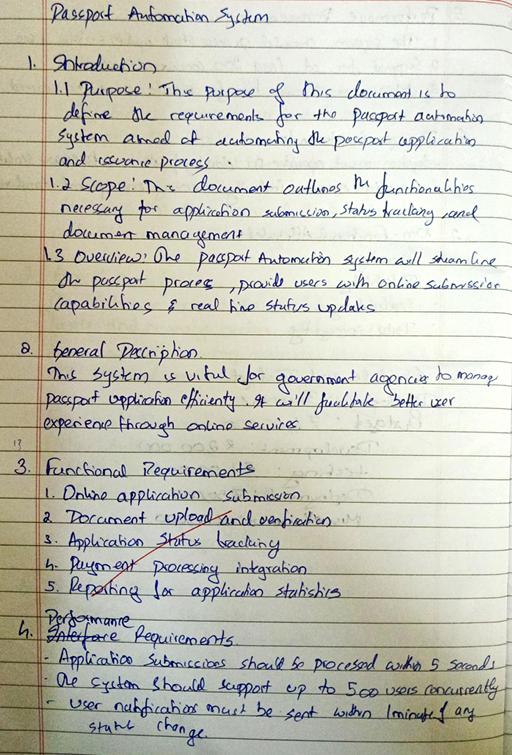 Passport Automation System
1. Introduction
1.1 Purpose: The purpose of this document is to
define the requirements for the passport automation
system aimed at automating the passport application
and issuance process.
1.2 Scope: This document outlines the functionalities
necessary for application submission, status tracking, and
document management
1.3 Overview: The passport Automation system will streamline
the passport process, provide users with online submission
capabilities & real time status updates
2. General Description.
This system is vital for government agencies to manage
passport application efficiently. It will facilitate better user
experience through online services.
3. Functional Requirements
1. Online application submission
2. Document upload and verification
3. Application Status tracking
4. Payment processing integration
5. Reporting for application statistics
Performance
4. Interface Requirements.
- Application submissions should be processed within 5 seconds
- The system should support up to 500 users concurrently
- User notifications must be sent within 1 minute of any
status change.